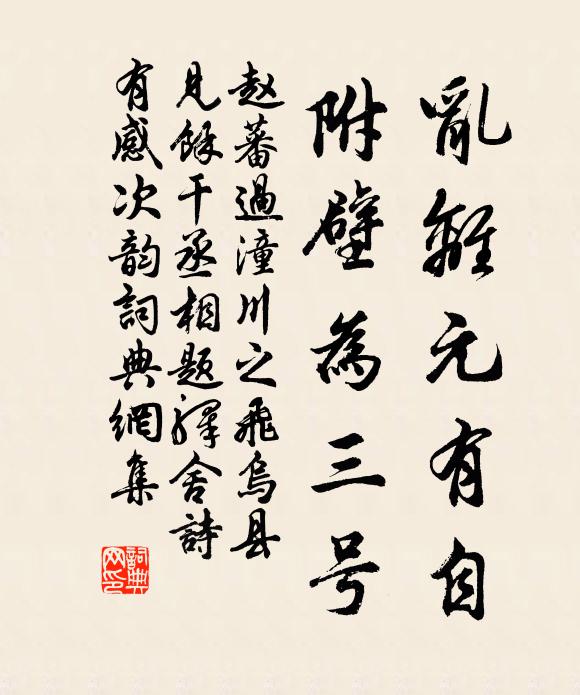 亂離元有自
附壁為三号
赵蕃過潼川之飛烏县
見餘干丞相題驛舍詩
有感次韵詞典網集
詞典網印